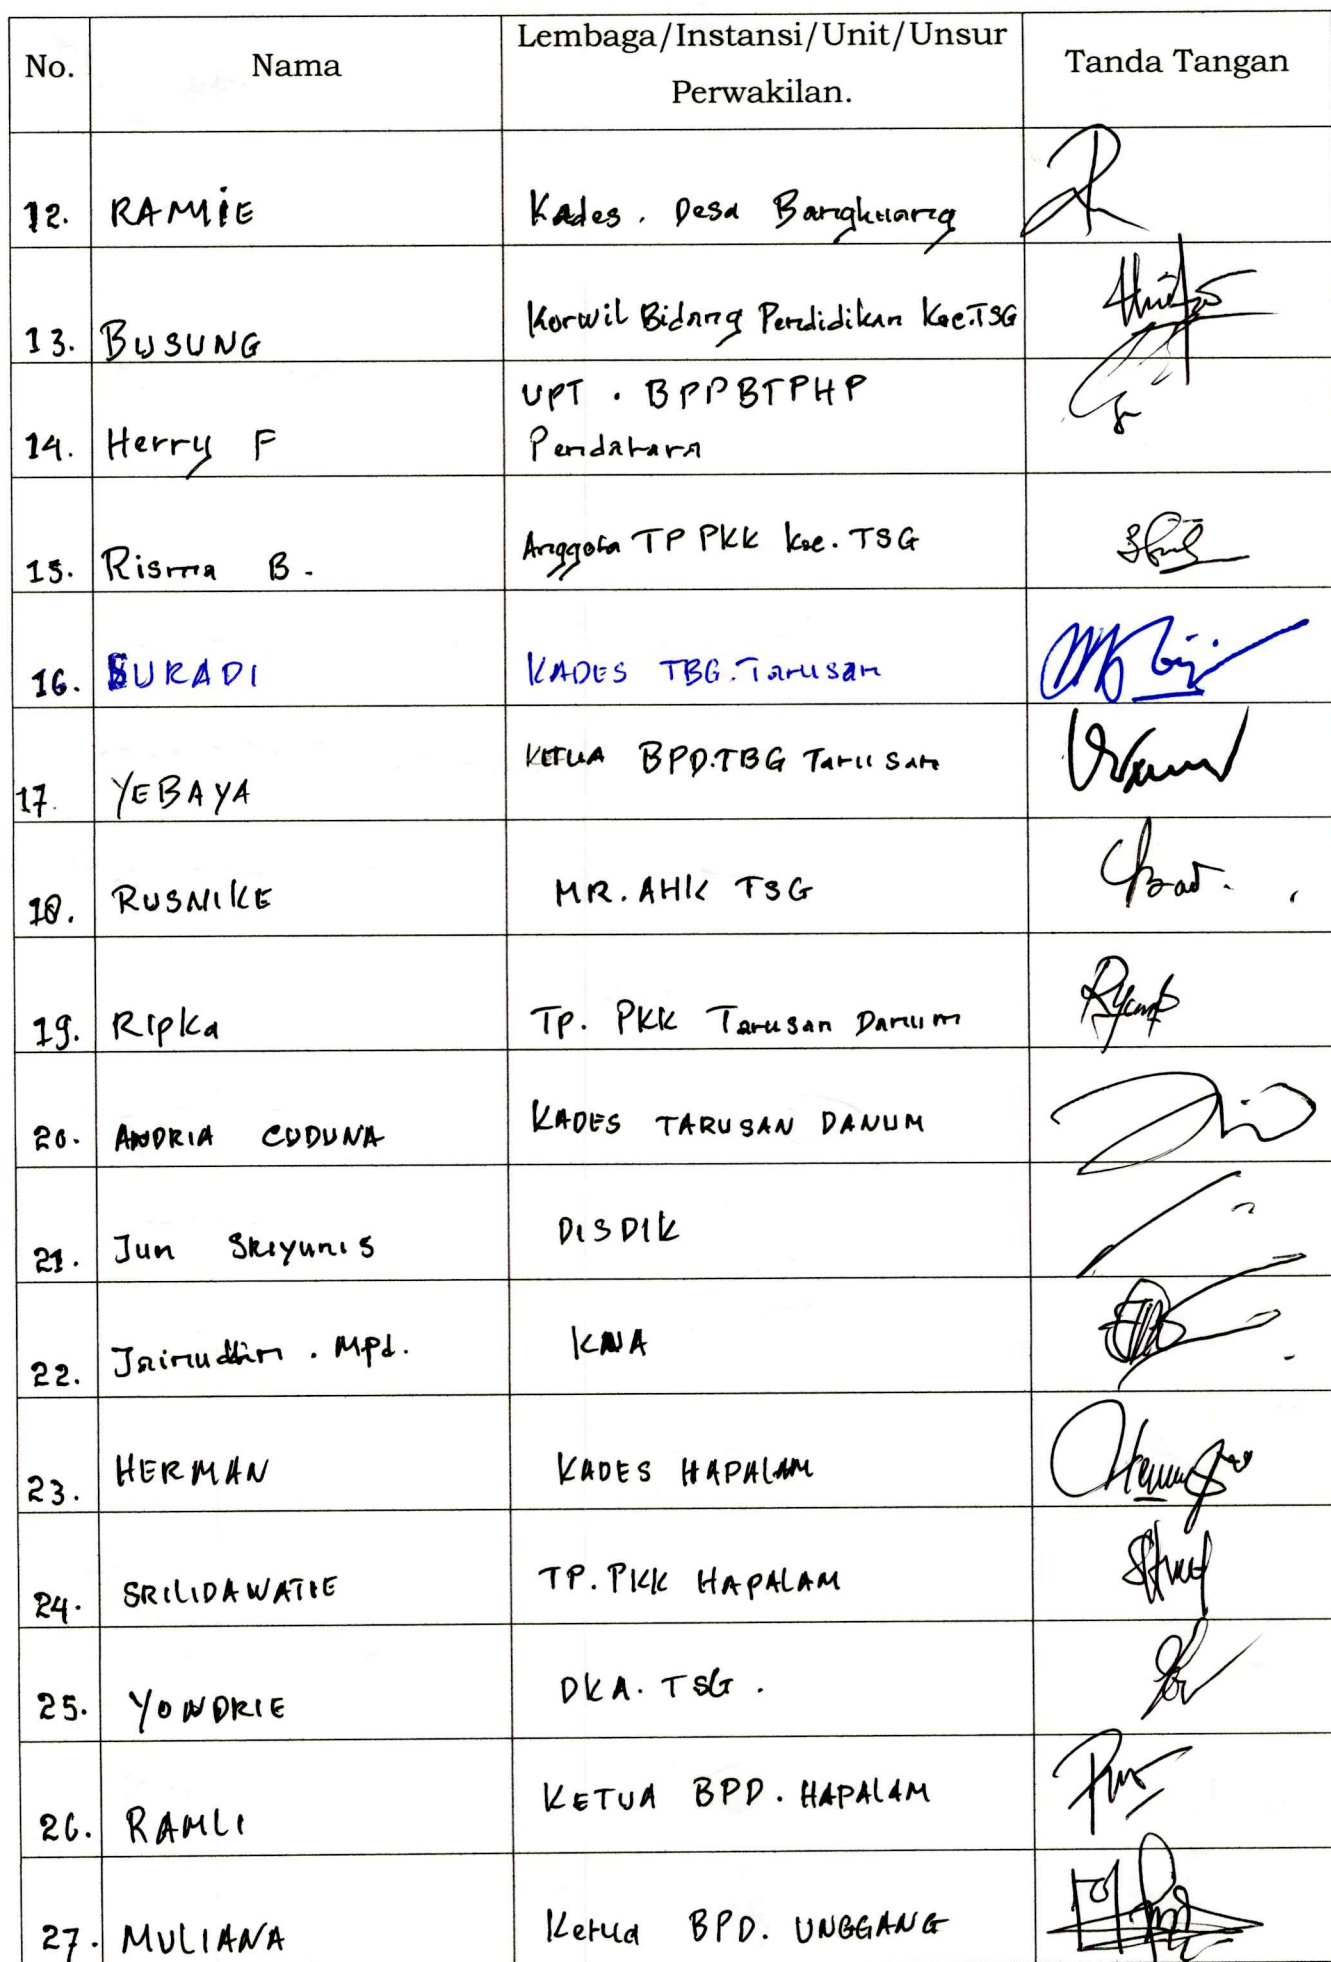 No. Nama Lembaga/Instansi/Unit/Unsur Perwakilan. Tanda Tangan
12. RAMIE Kades. Desa Bangkuang
13. BUSUNG Korwil Bidang Pendidikan Kec.TSG
14. Herry F UPT. BPPBTPHP
Pendahara
15. Risma B. Anggota TP PKK kec. TSG
16. SURADI KADES TBG. Tarusan
17. YEBAYA KETUA BPD.TBG Tarusan
18. RUSNIKE MR. AHK TSG
19. Ripka Tp. PKK Tarusan Danum
20. ANDRIA CUDUNA KADES TARUSAN DANUM
21. Jun Sriyunis DISDIK
22. Jainuddin. Mpd. KWA
23. HERMAN KADES HAPALAM
24. SRILIDAWATIE TP. PKK HAPALAM
25. YONDRIE DKA. TSG.
26. RAMLI KETUA BPD. HAPALAM
27. MULIANA Ketua BPD. UNGGANG